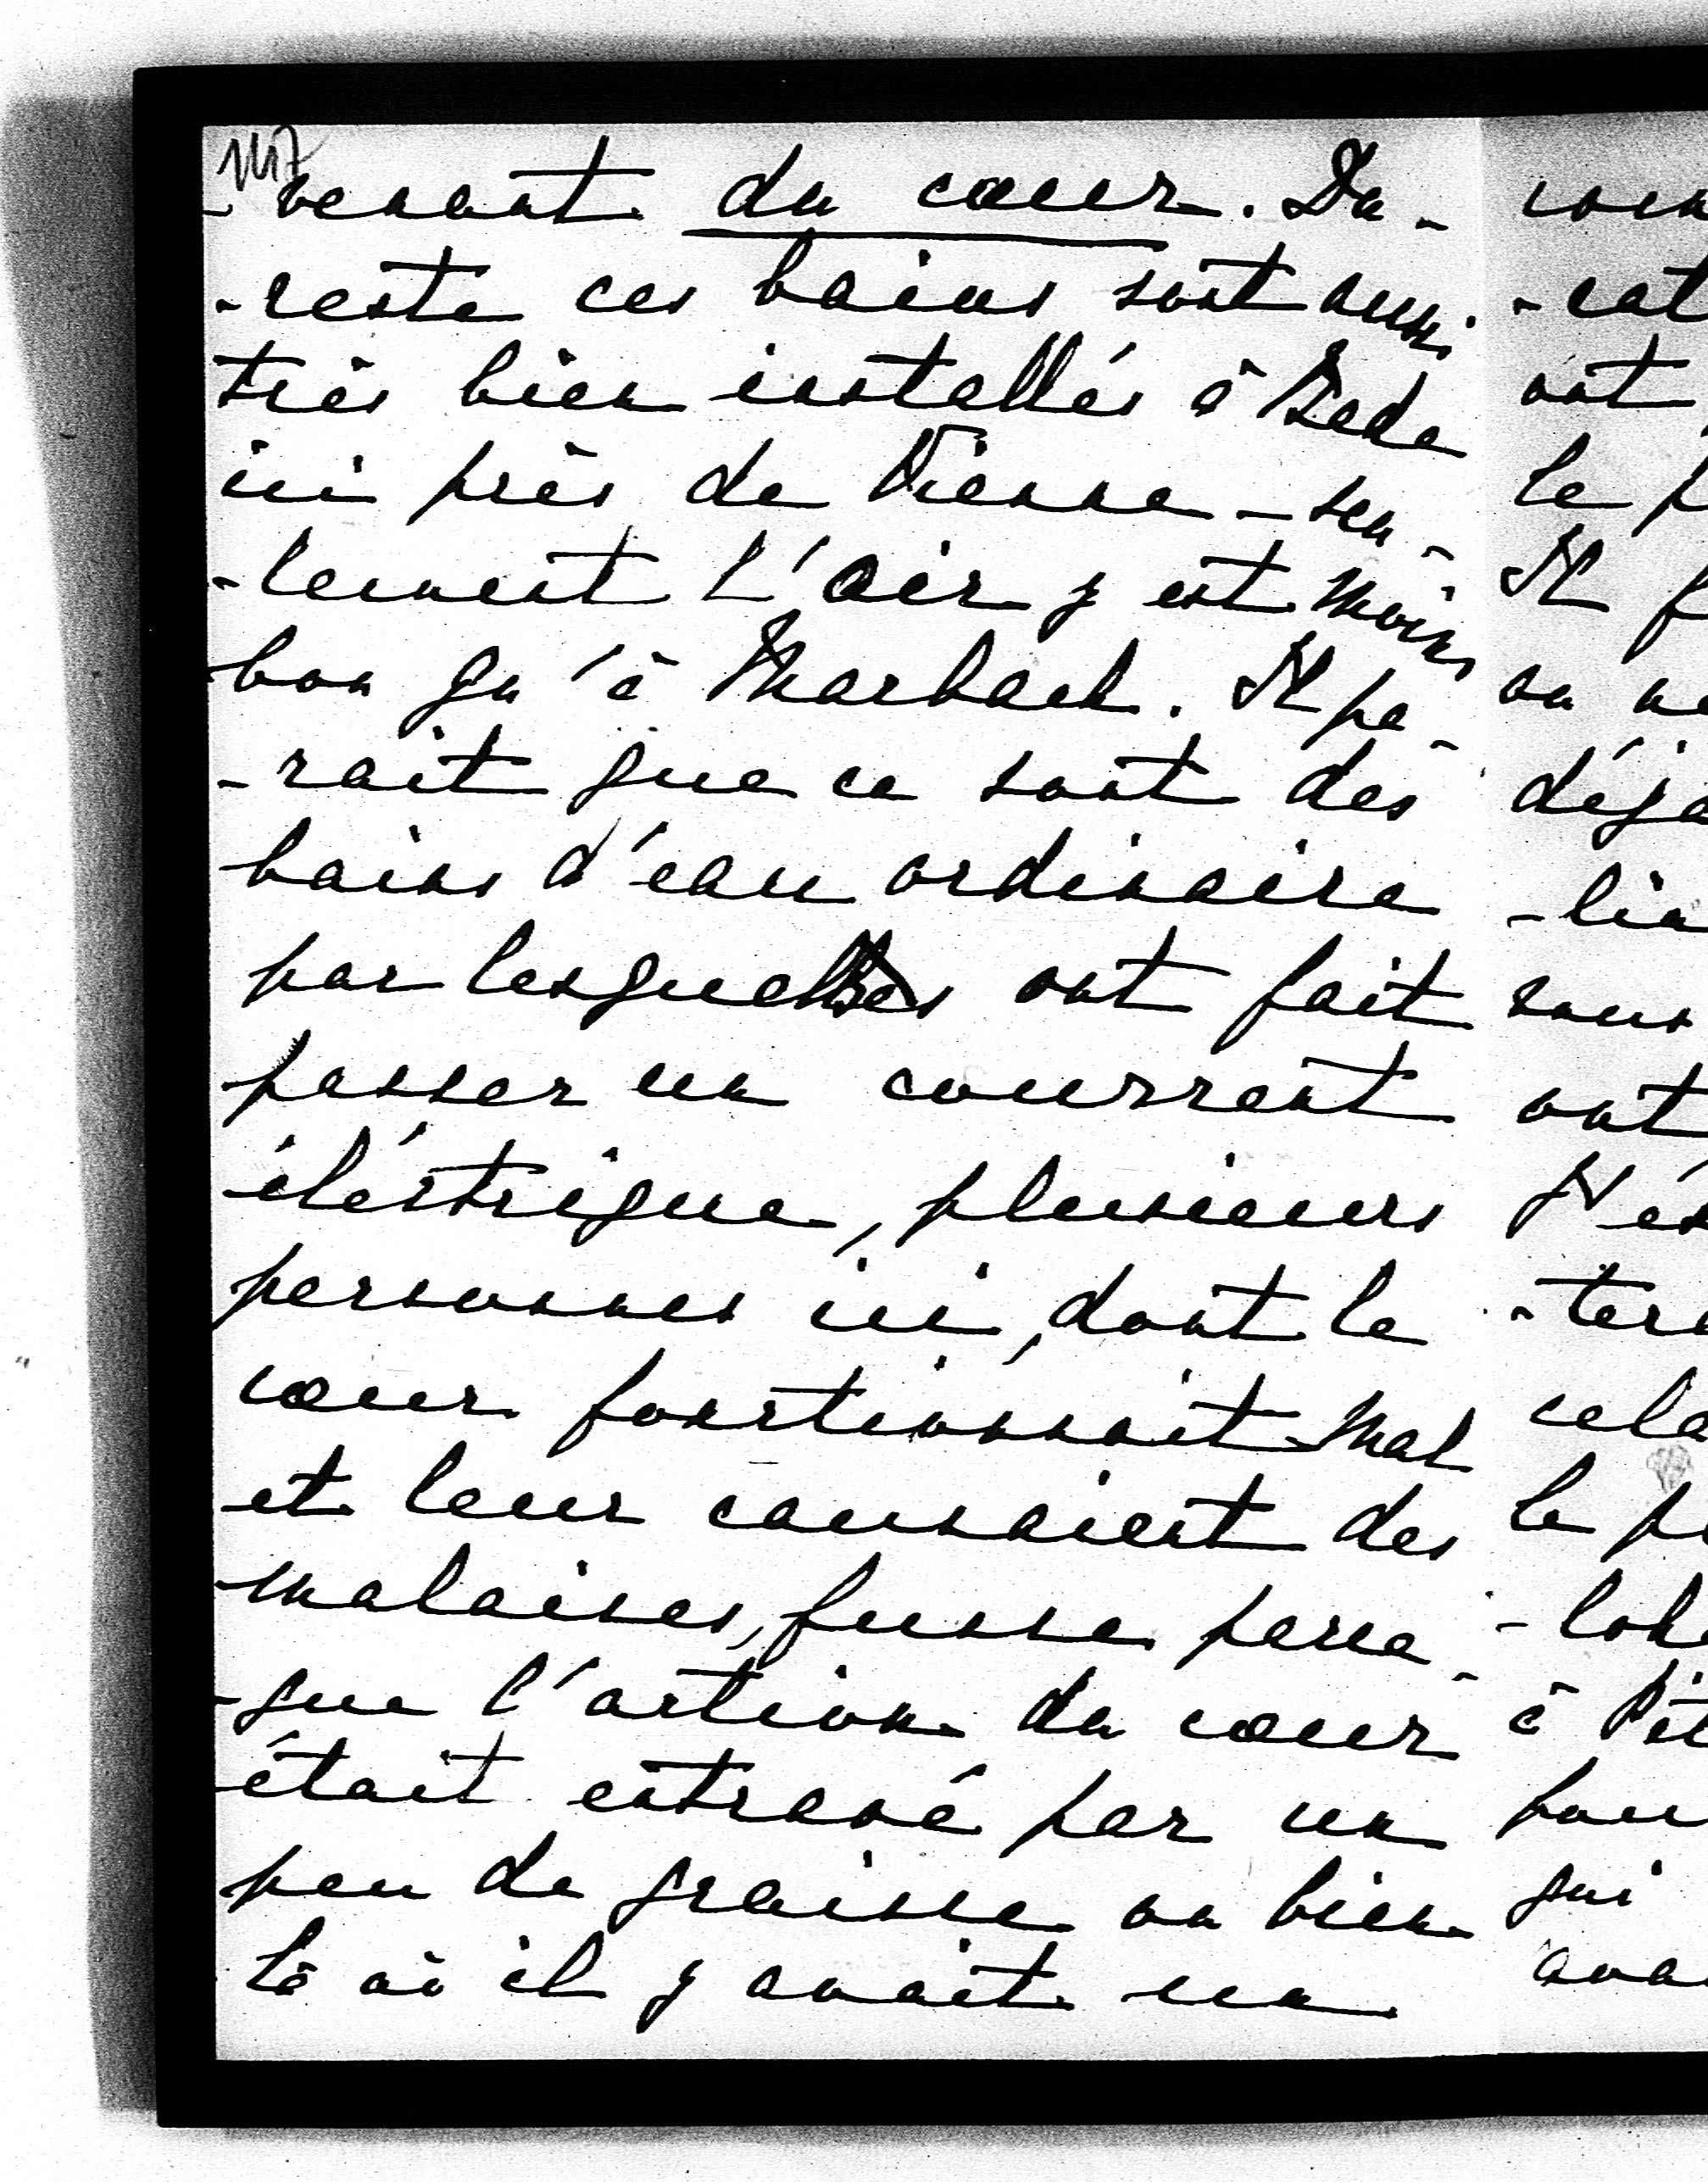 147
-venant du cœur. Du-
-reste ces bains sont aussi
très bien installés à Bade
ici près de Vienne - seu-
-lement l'air y est moins
bon qu'à Marbach. Il pa-
-rait que ce sont des
bains d'eau ordinaire
par lesquelles ont fait
passer un courrent
éléctrique, plusieurs
personnes ici, dont le
cœur fonctionnait mal
et leur causaient des
malaises, furne parce-
-que l'action du cœur
était entravé par un
peu de graisse ou bien
là où il y avait un
ont
le p
Il f
ou ne
déjà
-lia
sous
ont
-tere
cela
le p
à
qui